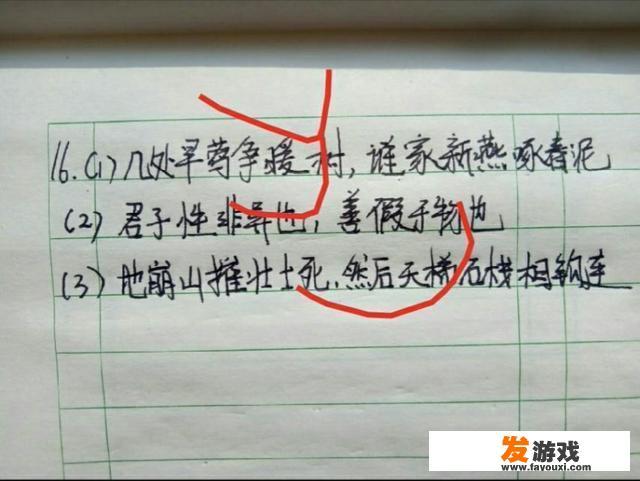 16.(1)几处早莺争暖树，谁家新燕啄春泥
(2)君子性非异也，善假于物也
(3)地崩山摧壮士死，然后天梯石栈相钩连
发游戏
www.fayouxi.com